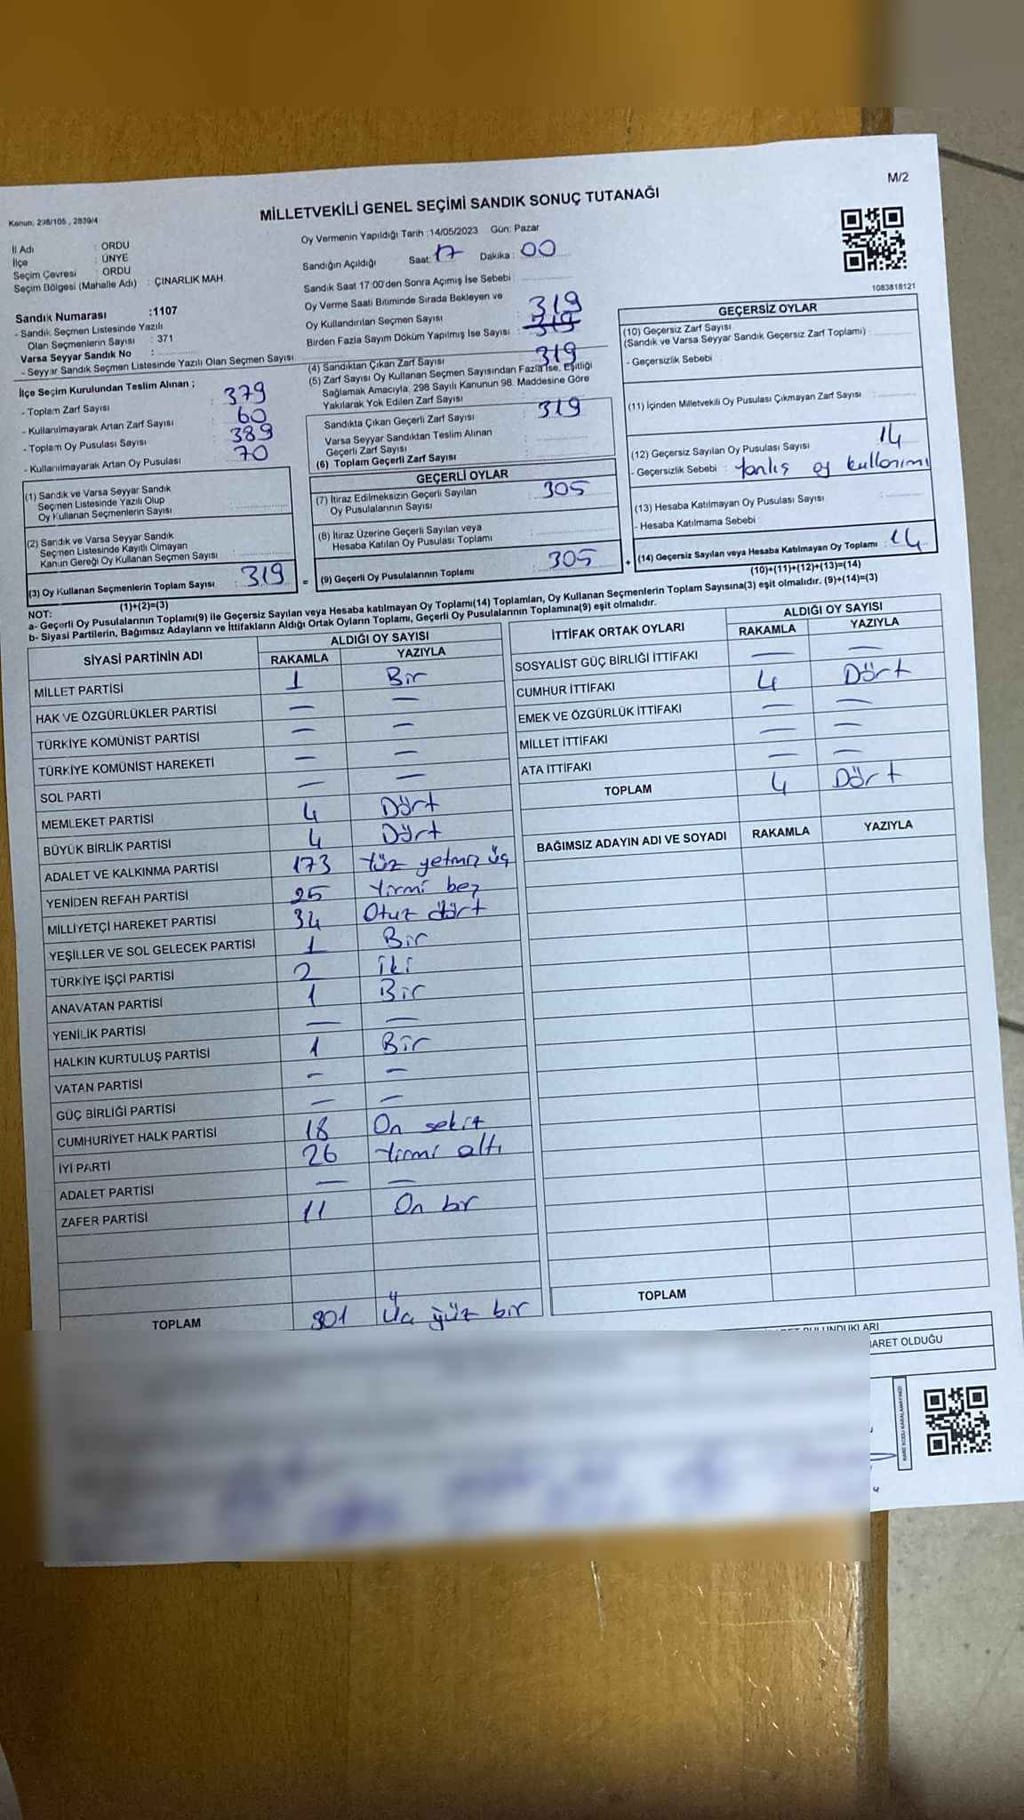 M/2
Kanun: 298/105 , 2839/4
MİLLETVEKİLİ GENEL SEÇİMİ SANDIK SONUÇ TUTANAĞI
İl Adı : ORDU
İlçe : ÜNYE
Seçim Çevresi : ORDU
Seçim Bölgesi (Mahalle Adı) : ÇINARLIK MAH.
Sandık Numarası :1107
- Sandık Seçmen Listesinde Yazılı
Olan Seçmenlerin Sayısı : 371
Varsa Seyyar Sandık No :
- Seyyar Sandık Seçmen Listesinde Yazılı Olan Seçmen Sayısı
Oy Vermenin Yapıldığı Tarih :14/05/2023 Gün: Pazar
Sandığın Açıldığı Saat: 17 Dakika : 00
Sandık Saat 17:00'den Sonra Açmış İse Sebebi :
Oy Verme Saati Bitiminde Sırada Bekleyen ve
Oy Kullandırılan Seçmen Sayısı : 319
Birden Fazla Sayım Döküm Yapılmış İse Sayısı : 319
1083818121
İlçe Seçim Kurulundan Teslim Alınan ;
- Toplam Zarf Sayısı 379
- Kullanılmayarak Artan Zarf Sayısı 60
- Toplam Oy Pusulası Sayısı 389
- Kullanılmayarak Artan Oy Pusulası 70
(1) Sandık ve Varsa Seyyar Sandık
Seçmen Listesinde Yazılı Olup
Oy Kullanan Seçmenlerin Sayısı :
(2) Sandık ve Varsa Seyyar Sandık
Seçmen Listesinde Kayıtlı Olmayan
Kanun Gereği Oy Kullanan Seçmen Sayısı :
(3) Oy Kullanan Seçmenlerin Toplam Sayısı : 319
(1)+(2)=(3)
(4) Sandıktan Çıkan Zarf Sayısı 319
(5) Zarf Sayısı Oy Kullanan Seçmen Sayısından Fazla İse, Eşitliği
Sağlamak Amacıyla, 298 Sayılı Kanunun 98. Maddesine Göre
Yakılarak Yok Edilen Zarf Sayısı :
Sandıkta Çıkan Geçerli Zarf Sayısı : 319
Varsa Seyyar Sandıktan Teslim Alınan
Geçerli Zarf Sayısı :
(6) Toplam Geçerli Zarf Sayısı :
GEÇERLİ OYLAR
(7) İtiraz Edilmeksizin Geçerli Sayılan
Oy Pusulalarının Sayısı : 305
(8) İtiraz Üzerine Geçerli Sayılan veya
Hesaba Katılan Oy Pusulası Toplamı :
= (9) Geçerli Oy Pusulalarının Toplamı : 305 +
GEÇERSİZ OYLAR
(10) Geçersiz Zarf Sayısı
(Sandık ve Varsa Seyyar Sandık Geçersiz Zarf Toplamı) :
- Geçersizlik Sebebi :
(11) İçinden Milletvekili Oy Pusulası Çıkmayan Zarf Sayısı :
(12) Geçersiz Sayılan Oy Pusulası Sayısı : 14
- Geçersizlik Sebebi : Yanlış oy kullanımı
(13) Hesaba Katılmayan Oy Pusulası Sayısı :
- Hesaba Katılmama Sebebi :
(14) Geçersiz Sayılan veya Hesaba Katılmayan Oy Toplamı : 14
(10)+(11)+(12)+(13)=(14)
NOT:
a- Geçerli Oy Pusulalarının Toplamı(9) ile Geçersiz Sayılan veya Hesaba katılmayan Oy Toplamı(14) Toplamları, Oy Kullanan Seçmenlerin Toplam Sayısına(3) eşit olmalıdır. (9)+(14)=(3)
b- Siyasi Partilerin, Bağımsız Adayların ve İttifakların Aldığı Ortak Oyların Toplamı, Geçerli Oy Pusulalarının Toplamına(9) eşit olmalıdır.
SİYASİ PARTİNİN ADI ALDIĞI OY SAYISI
RAKAMLA YAZIYLA
MİLLET PARTİSİ 1 Bir
HAK VE ÖZGÜRLÜKLER PARTİSİ — —
TÜRKİYE KOMÜNİST PARTİSİ — —
TÜRKİYE KOMÜNİST HAREKETİ — —
SOL PARTİ — —
MEMLEKET PARTİSİ 4 Dört
BÜYÜK BİRLİK PARTİSİ 4 Dört
ADALET VE KALKINMA PARTİSİ 173 Yüz yetmiş üç
YENİDEN REFAH PARTİSİ 25 Yirmi beş
MİLLİYETÇİ HAREKET PARTİSİ 34 Otuz dört
YEŞİLLER VE SOL GELECEK PARTİSİ 1 Bir
TÜRKİYE İŞÇİ PARTİSİ 2 İki
ANAVATAN PARTİSİ 1 Bir
YENİLİK PARTİSİ — —
HALKIN KURTULUŞ PARTİSİ 1 Bir
VATAN PARTİSİ — —
GÜÇ BİRLİĞİ PARTİSİ — —
CUMHURİYET HALK PARTİSİ 18 On sekiz
İYİ PARTİ 26 Yirmi altı
ADALET PARTİSİ — —
ZAFER PARTİSİ 11 On bir
TOPLAM 301 Üç yüz bir
İTTİFAK ORTAK OYLARI ALDIĞI OY SAYISI
RAKAMLA YAZIYLA
SOSYALİST GÜÇ BİRLİĞİ İTTİFAKI — —
CUMHUR İTTİFAKI 4 Dört
EMEK VE ÖZGÜRLÜK İTTİFAKI — —
MİLLET İTTİFAKI — —
ATA İTTİFAKI — —
TOPLAM 4 Dört
BAĞIMSIZ ADAYIN ADI VE SOYADI RAKAMLA YAZIYLA
TOPLAM